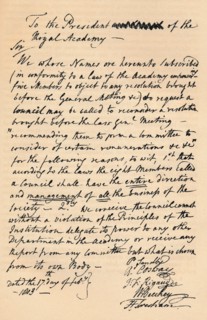 To the President of the
Royal Academy —
Sir
We whose Names are hereunto Subscribed
(in conformity to a Law of the Academy
five Members to object to any resolution brought
before the General Meeting &c) request a
Council may be called to reconsider a resolution
brought before the last Genl Meeting —
recommending them to form a Committee to
consider of certain remunerations &c &c
for the following reasons, to wit, 1st that
according to the Laws the eight Members called
a Council shall have the entire direction
and management of all the business of the
Society — 2d We conceive the Council cannot
without a violation of the Principles of the
Institution delegate its power to any other
department in the Academy or receive any
Report from any Committee but what is chosen
from its own Body —
dated the 17 day of
1803